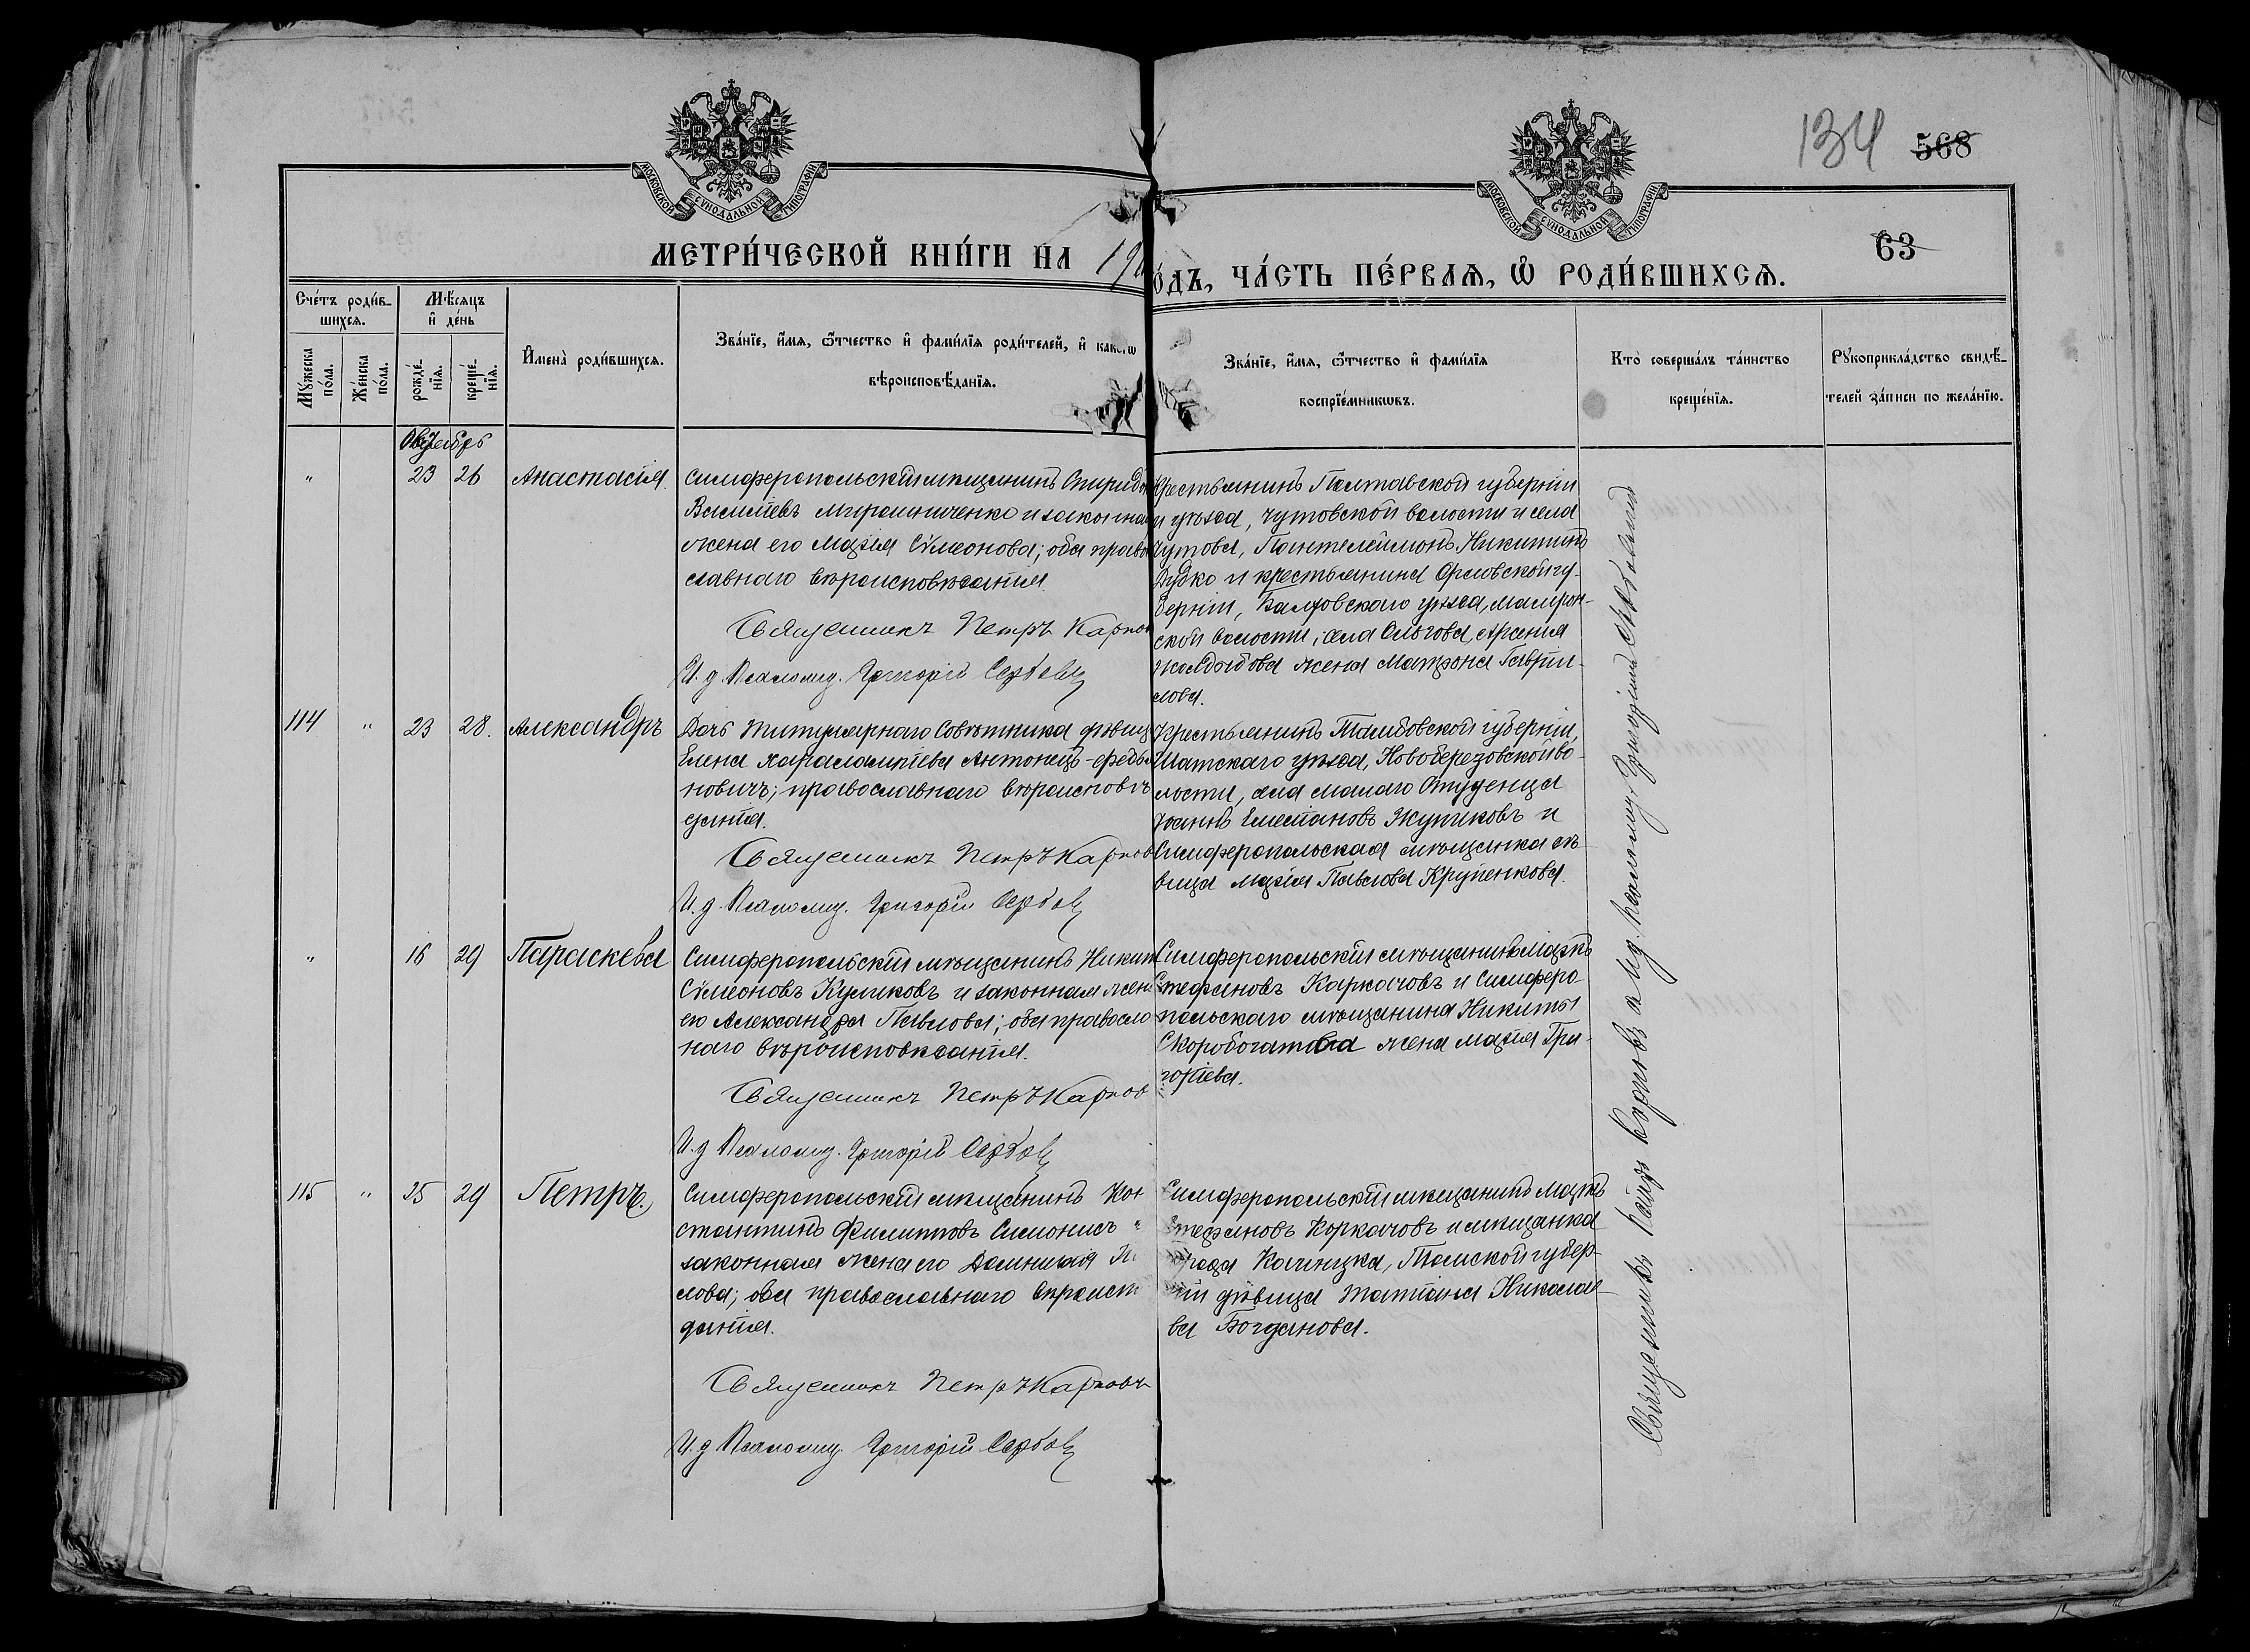 134 568
МОСКОВСКОЙ СѴНОДАЛЬНОЙ ТИПОГРАФІИ
МОСКОВСКОЙ СѴНОДАЛЬНОЙ ТИПОГРАФІИ
63
МЕТРИ́ЧЕСКОЙ КНИ́ГИ НА 19
О́ДЪ, ЧА́СТЬ ПЕ́РВАѦ, Ѽ РОДИ́ВШИХСѦ.
Сче́тъ роди́в-
шихсѧ.
Мѣ́сѧцъ
и҆ де́нь
Мꙋ́жеска
по́ла.
Же́нска
по́ла.
рожде́-
нїѧ.
креще́-
нїѧ.
И҆мена̀ роди́вшихсѧ.
Зва́нїе, и҆́мѧ, ѻ҆́тчество и҆ фами́лїѧ роди́телей, и҆ како́гѡ
вѣроисповѣ́данїѧ.
Зва́нїе, и҆́мѧ, ѻ҆́тчество и҆ фами́лїѧ
воспрїе́мникѡвъ.
Кто̀ соверша́лъ та́инство
креще́нїѧ.
Рꙋкоприкла́дство свидѣ́-
телей за́писи по жела́нїю.
Октябрь
" 23 26 Анастасія.
Симферопольскій мѣщанинъ Спиридо
Василіевъ Мирошниченко и законна
жена его Марія Сѵмеонова; оба право
славнаго вѣроисповѣданія.
Священникъ Петръ Карпов
И. д. Псаломщ. Григорій Сербов
Крестьянинъ Полтавской губерніи
и уѣзда, Чутовской волости и села
Чутова, Пантелеимонъ Никитинъ
Дудко и крестьянина Орловской гу-
берніи,
уѣзда,
ской волости, села Ольгова, Арсенія
жена Матрона Гаврии-
лова.
114 " 23 28. Александръ
Дочь Титулярнаго Совѣтника дѣвиц
Елена Харалампіева Антонецъ-Федь
новичъ; православнаго вѣроисповѣ
данія.
Священникъ Петръ Карпов
И. д. Псаломщ. Григорій Сербов
Крестьянинъ Тамбовской губерніи,
Шатскаго уѣзда, Новоберезовской во-
лости, села Малаго Студенца
Іоаннъ и
Симферопольская мѣщанка дѣ-
вица Марія Павлова Крупенкова.
" 16 29 Параскева
Симферопольскій мѣщанинъ Никит
Сѵмеоновъ Куликовъ и законная жен
его Александра Павлова; оба правосла
наго вѣроисповѣданія.
Священникъ Петръ Карпов
И. д. Псаломщ. Григорій Сербов
Симферопольскій мѣщанинъ Маркъ
Стефановъ Каркачовъ и Симферо-
польскаго мѣщанина Никиты
Скоробогатова жена Марія Гри-
горіева.
115 " 25 29 Петръ.
Симферопольскій мѣщанинъ Кон
стантинъ Филипповъ Симонисъ
законная жена его Домникія
лова; оба православнаго вѣроисп
данія.
Священникъ Петръ Карповъ
И. д. Псаломщ. Григорій Сербов
Симферопольскій мѣщанинъ Маркъ
Стефановъ Коркачовъ и мѣщанка
города Томской губер-
ніи дѣвица Татіана Николае-
ва Богданова.
Священникъ Петръ Карповъ и И.д. псаломщ. Григорій